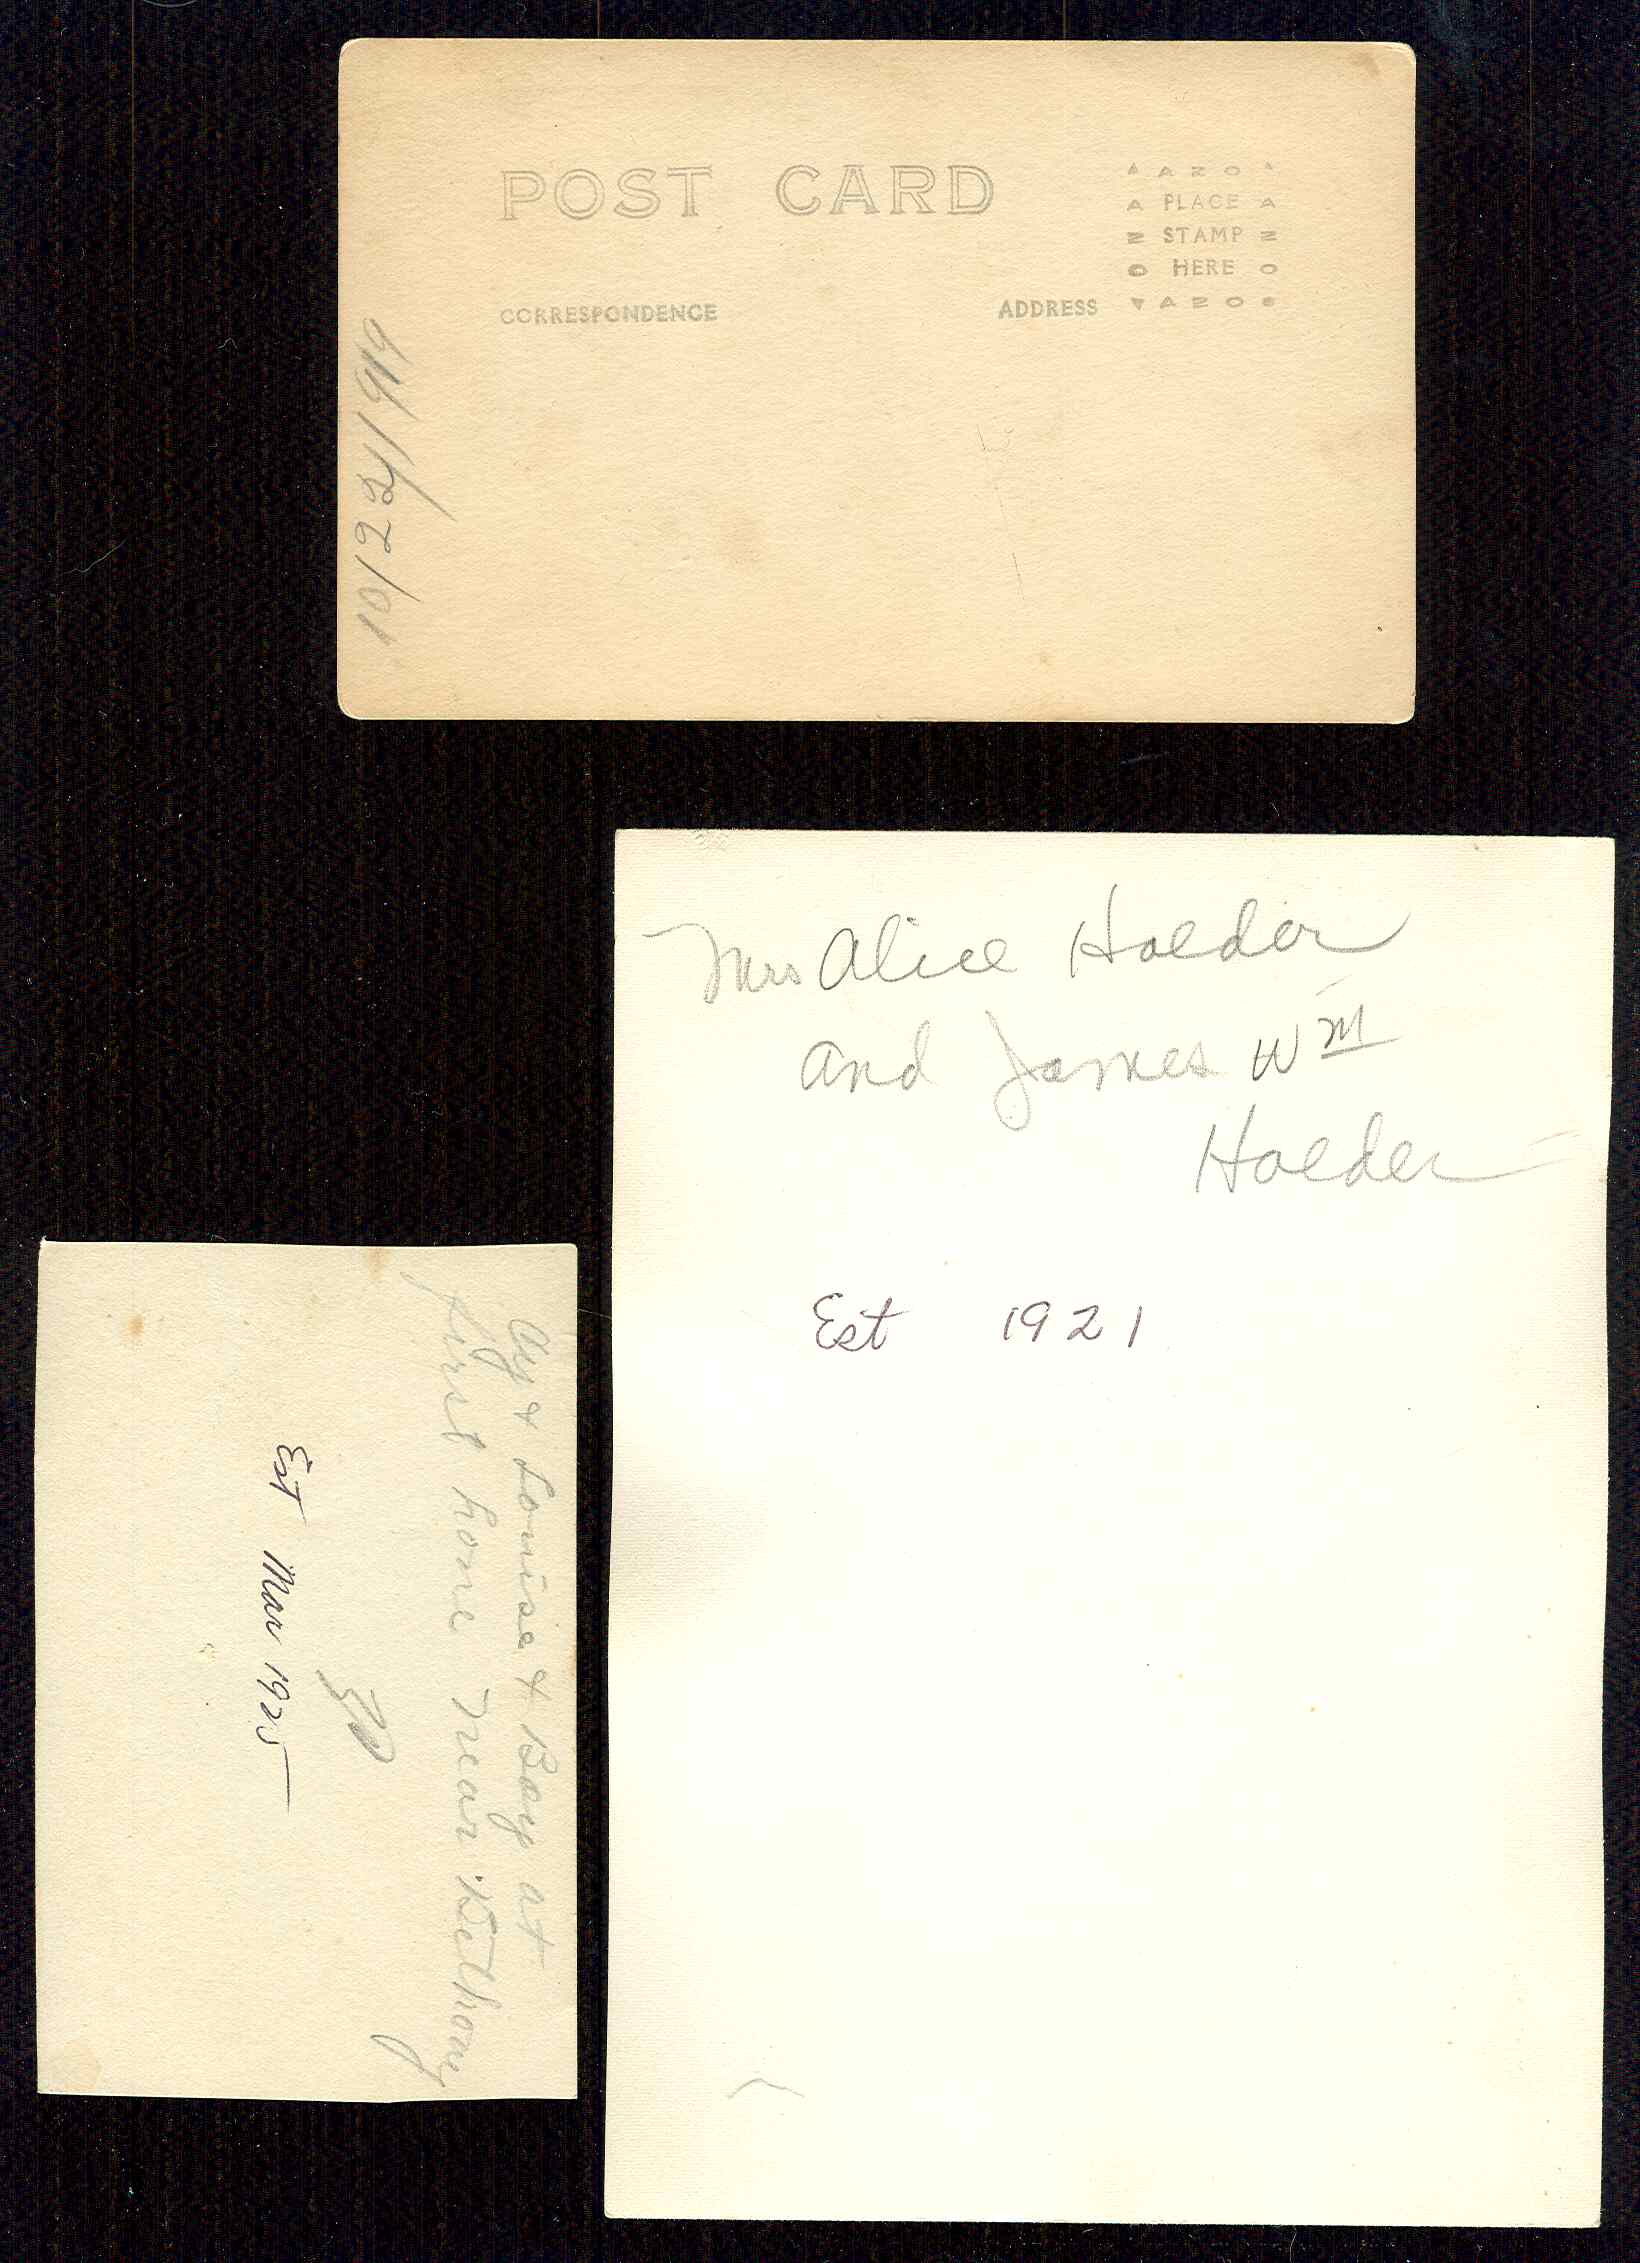 POST CARD
AZO
PLACE
STAMP
HERE
AZO
CORRESPONDENCE
ADDRESS
Mrs Alice Holder
and James Wm
Holder
Est 1921
& Louise & Boy at
first home near Bethany
Est Mar 1925